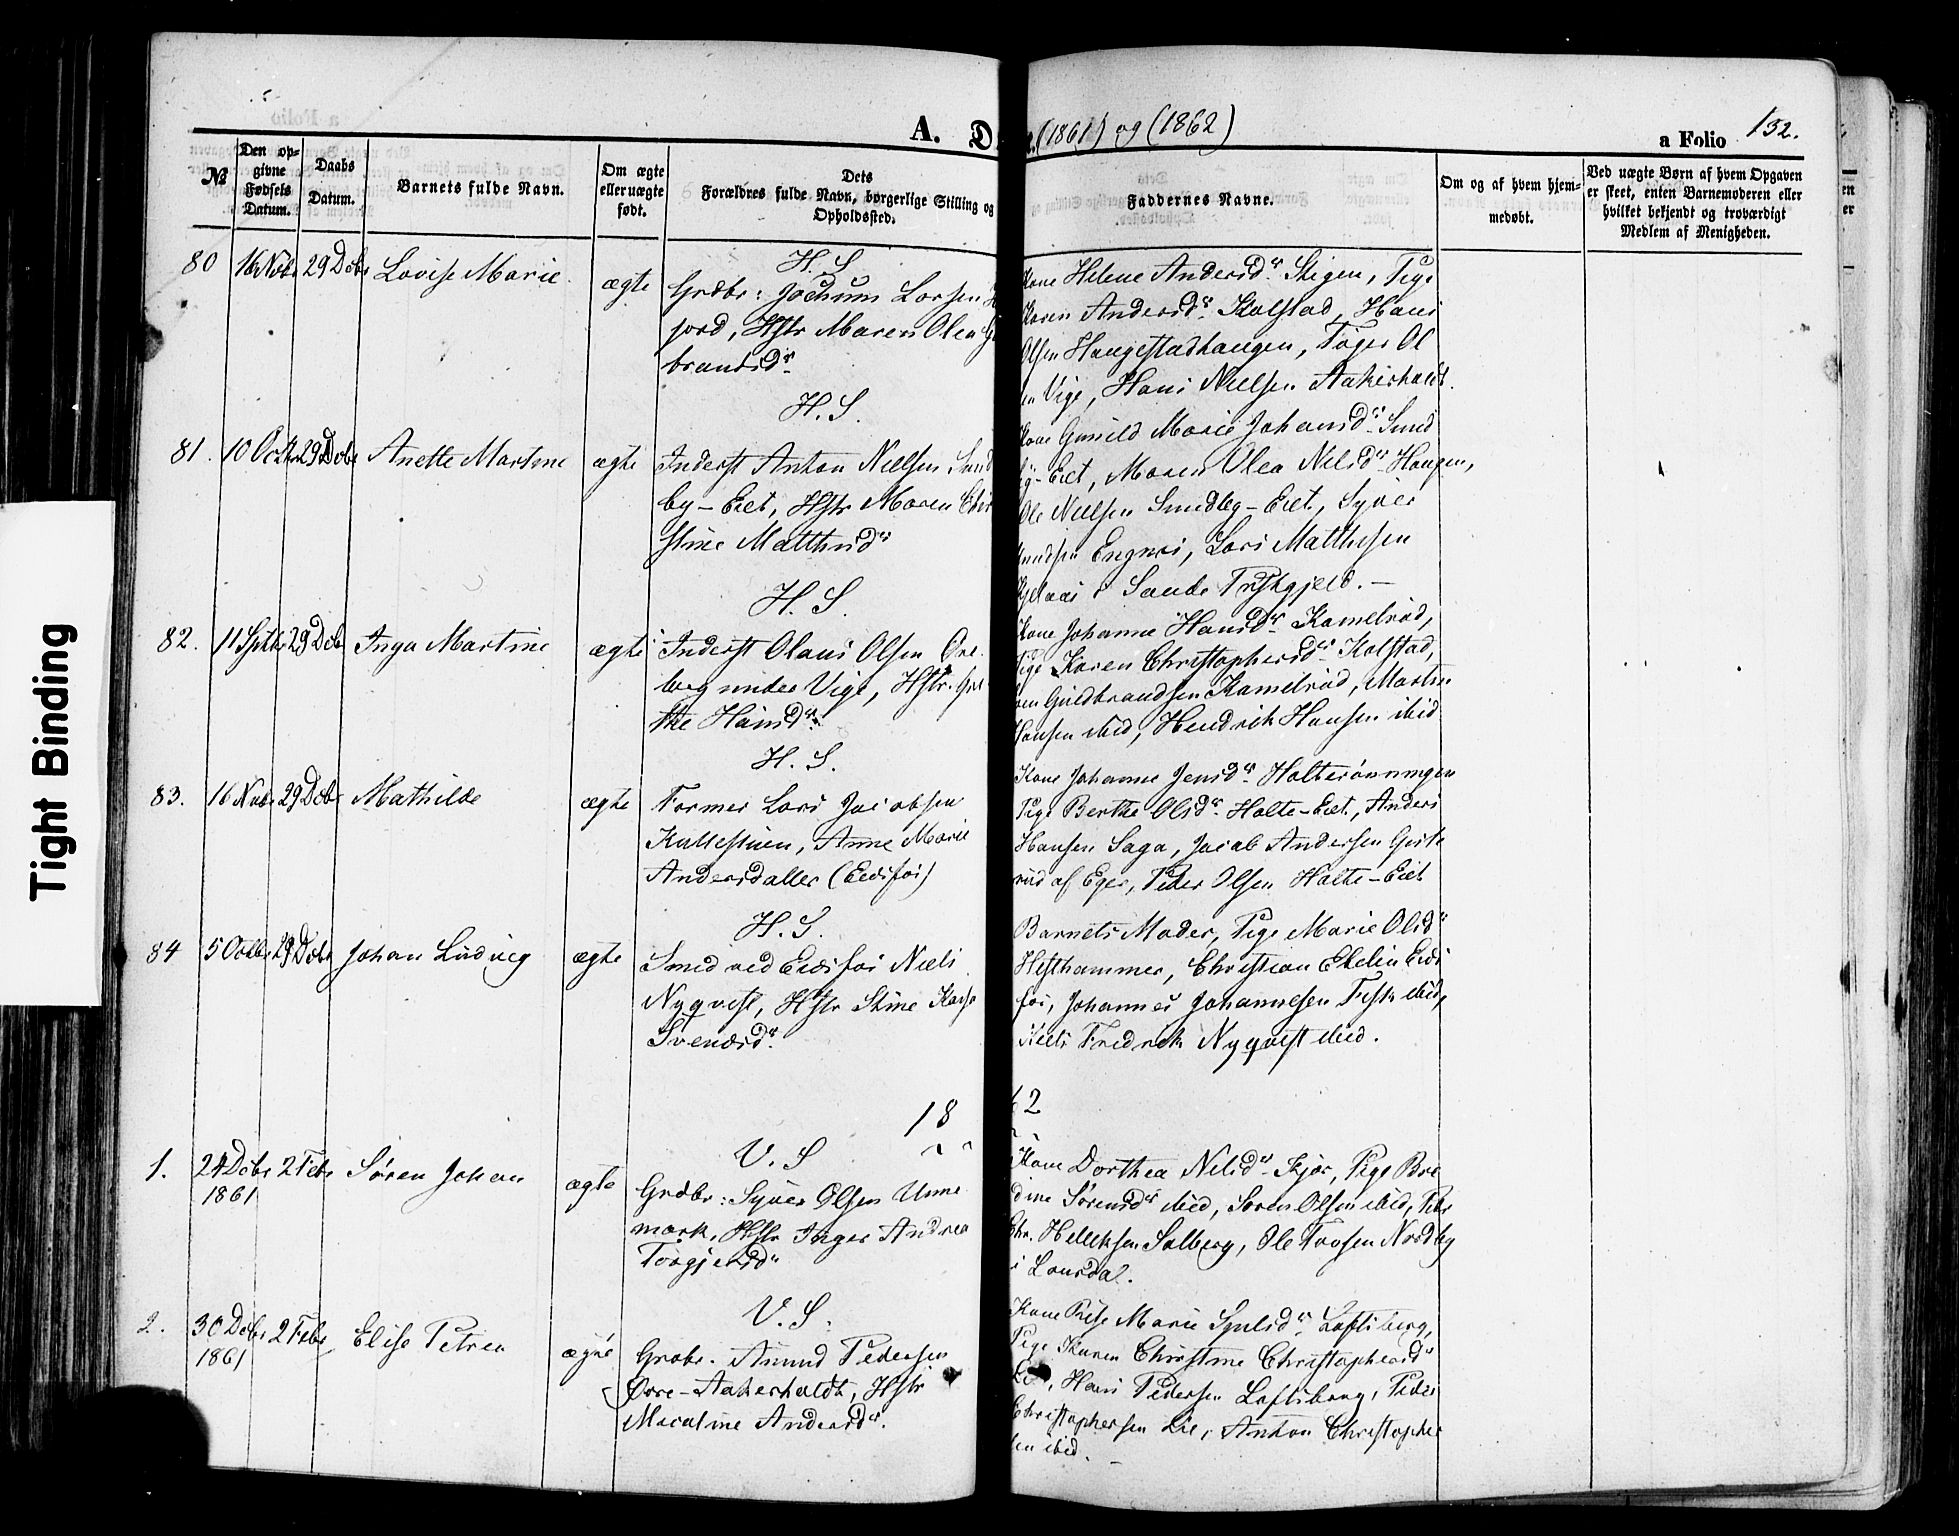 A. D
(1861) og (1862)
a Folio 132.
№
Den op-
givne
Fødsels
Datum.
Daabs
Datum.
Barnets fulde Navn.
Om ægte
eller uægte
født.
Dets
Forældres fulde Navn, borgerlige Stilling og
Opholdssted.
Faddernes Navne.
Om og af hvem hjem-
medøbt.
Ved uægte Børn af hvem Opgaven
er skeet, enten Barnemoderen eller
hvilket bekjendt og troværdigt
Medlem af Menigheden.
H. S
80 16 Novbr 29 Dcbr Lovise Marie ægte
Grdbr: Jochum Larsen
fjord, Hstr Maren Olea
brandsdr
Kone Helene Andersdr Skigen, Pige
Karen Andersdr Kolstad, Hans
Olsen Haugestadhaugen, Tøger Ol
en Vige, Hans Nielsen Aakerholdt.
H. S.
81. 10 Octbr 29 Dcbr Anette Martine ægte
Inderst Anton Nielsen Smed
by-Eiet, Hstr Maren Chri
stine Matthisdr
Kone Gunild Marie Johansdr Smed
by-Eiet, Maren Olea Nilsdr Haugen,
Ole Nielsen Smedby-Eiet, Syver
Knudsen Engnes, Lars Mathesen
i Sande Præstgjeld. -
H. S.
82. 11 Septbr 29 Dcbr Inga Martine ægte
Inderst Olaus Olsen Ove
berg under Vige, Hstr. Gre
the Hansdr
Kone Johanne Hansdr Kamelrud,
Pige Karen Christophersdr Kolstad,
en Guldbrandsen Kamelrud, Martin
Hansen ibid, Hendrik Hansen ibid
H. S.
83. 16 Novbr 29 Dcbr Mathilde ægte
Former Lars Jacobsen
Kullestuen, Anne Marie
Andersdatter (Eidsfos)
Kone Johanne Jensdr Holterønningen
Pige Berthe Olsdr Holte-Eiet, Anders
Hansen Saga, Jacob Andersen Gurte
rud af Eger, Peder Olsen Holte-Eiet
H. S.
84 5 Octbr 29 Dcbr Johan Ludvig ægte
Smed ved Eidsfos Niels
Nyqvist, Hstr Stine Kaisa
Svendsdr
Barnets Moder, Pige Marie Olsdr
Hesthammer, Christian Ekelin Eids
fos, Johannes Johannesen Fisk ibid,
Niels Fredrik Nyqvist ibid.
1862
V. S
1. 24 Dcbr 2 Febr Søren Johan ægte
1861
Grdbr: Syver Olsen Unne
mark, Hstr Inger Andrea
Torgjersdr
Kone Dorthea Nilsdr Kjær, Pige Bre
dine Sørensdr ibid, Søren Olsen ibid, Peter
Chr. Helleksen Solberg, Ole Tovsen Nordby
i Laurdal.
V. S.
2. 30 Dcbr 2 Febr Elise Petrea ægte
1861
Grdbr. Amund Pedersen
Øvre-Aakerholdt, Hstr
Maratine Andersdr.
Kone Marie Loftsberg,
Pige Karen Christine Christophersdr
Lie, Hans Pedersen Loftsberg, Peder
Christophersen Lie, Anton Christopher
sen ibid.
Tight Binding